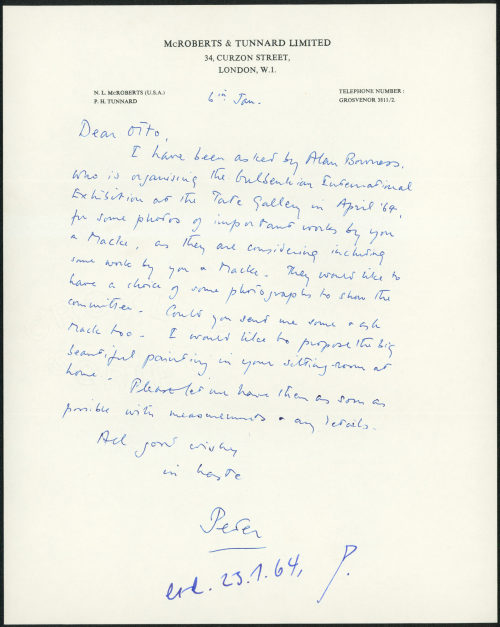 McROBERTS & TUNNARD LIMITED
34, CURZON STREET,
LONDON, W.1.
N. L. McROBERTS (U.S.A.)
P. H. TUNNARD
TELEPHONE NUMBER :
GROSVENOR 3811/2.
6th Jan.
Dear Otto,
I have been asked by Alan Bowness,
who is organising the Gulbenkian International
Exhibition at the Tate Gallery in April '64,
for some photos of important works by you
& Mack, as they are considering including
some work by you & Mack. They would like to
have a choice of some photographs to show the
committee. Could you send me some & ask
Mack too. I would like to propose the big
beautiful painting in your sitting-room at
home. Please let me have them as soon as
possible with measurements & any details.
All good wishes
in haste
Peter
erl. 23.1.64, P.